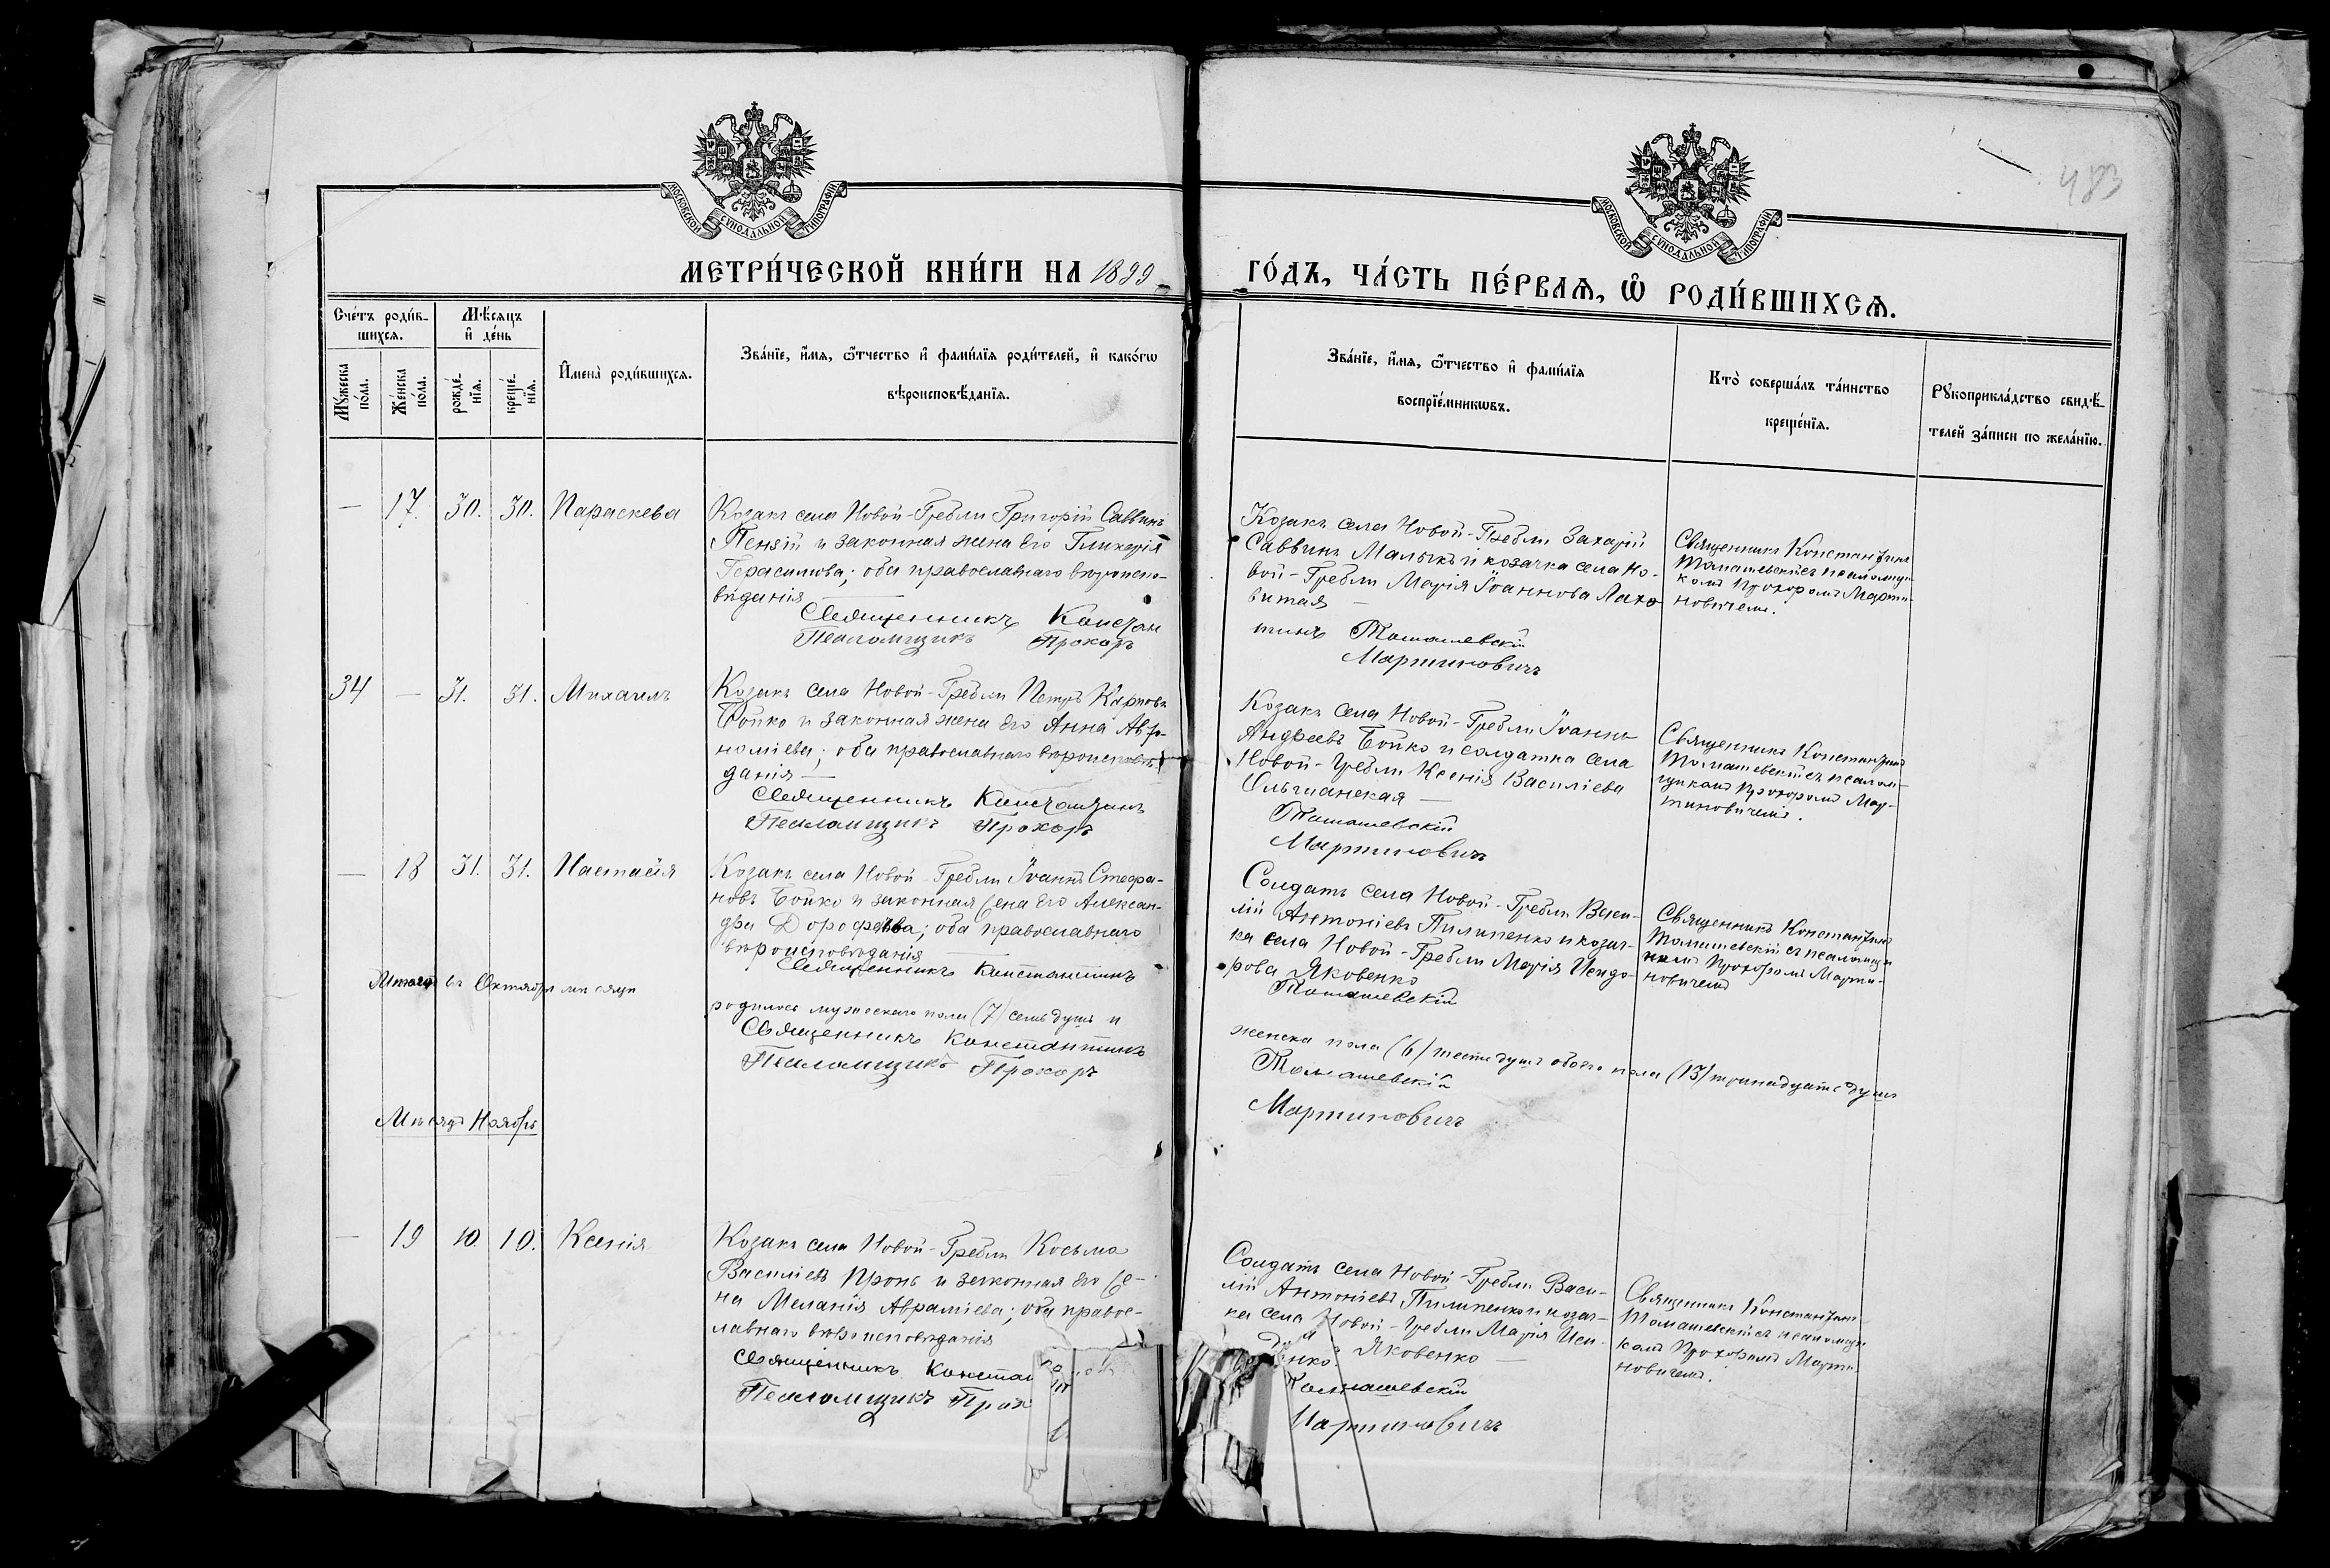 МОСКОВСКОЙ СѴНОДАЛЬНОЙ ТИПОГРАФІИ
МОСКОВСКОЙ СѴНОДАЛЬНОЙ ТИПОГРАФІИ
483
МЕТРИ́ЧЕСКОЙ КНИ́ГИ НА 1899
ГО́ДЪ, ЧА́СТЬ ПЕ́РВАѦ, Ѽ РОДИ́ВШИХСѦ.
Сче́тъ роди́в-
шихсѧ.
Му́жеска
по́ла.
Же́нска
по́ла.
Мѣ́сѧцъ
и҆ де́нь
рожде́-
нїѧ.
креще́-
нїѧ.
И҆мена̀ роди́вшихсѧ.
Зва́нїе, и҆́мѧ, ѻ҆́тчество и҆ фами́лїѧ роди́телей, и҆ како́гѡ
вѣроисповѣ́данїѧ.
Зва́нїе, и҆́мѧ, ѻ҆́тчество и҆ фами́лїѧ
воспрїе́мникѡвъ.
Кто̀ соверша́лъ та́инство
креще́нїѧ.
Рꙋкоприкла́дство свидѣ́-
телей за́писи по жела́нїю.
— 17. 30. 30. Параскева
Козакъ села Новой-Гребли Григорій Саввинъ
Пензій и законная жена его Гликерія
Герасимова; оба православнаго вѣроиспо-
вѣданія —
Священникъ Констан
Псаломщикъ Прохоръ
Козакъ села Новой-Гребли Захарій
Саввинъ Малыкъ и козачка села Но-
вой-Гребли Марія Іоаннова
витая —
тинъ Томашевскій
Мартиновичъ
Священникъ Константинъ
Томашевскій съ псаломщи-
комъ Прохоромъ Марти-
новичемъ.
34 — 31. 31. Михаилъ
Козакъ села Новой-Гребли Петръ Карповъ
Бойко и законная жена его Анна Авто-
номіева; оба православнаго вѣроисповѣ-
данія —
Священникъ Константинъ
Псаломщикъ Прохоръ
Козакъ села Новой-Гребли Іоаннъ
Андреевъ Бойко и солдатка села
Новой-Гребли Ксенія Василіева
Ольшанская —
Томашевскій
Мартиновичъ
Священникъ Константинъ
Томашевскій съ псалом-
щикомъ Прохоромъ Мар-
тиновичемъ.
— 18 31. 31. Настасія
Козакъ села Новой-Гребли Іоаннъ Стефа-
новъ Бойко и законная жена его Алексан-
дра Дорофеева; оба православнаго
вѣроисповѣданія —
Священникъ Константинъ
Солдатъ села Новой-Гребли Васи-
лій Антоніевъ Пилипенко и козач-
ка села Новой-Гребли Марія Исидо-
рова Яковенко
Томашевскій
Священникъ Константинъ
Томашевскій съ псаломщи
комъ Прохоромъ Марти-
новичемъ
Итого въ Октябрѣ мѣсяцѣ
родилось мужескаго пола (7) семь душъ и
женска пола (6) шесть душъ обоего пола (13) тринадцать душъ
Священникъ Константинъ
Псаломщикъ Прохоръ
Томашевскій
Мартиновичъ
Мѣсяцъ Ноябрь
— 19 10. 10. Ксенія
Козакъ села Новой-Гребли Косьма
Василіевъ Пронь и законная его же-
на Меланія Авраміева; оба право-
славнаго вѣроисповѣданія
Священникъ Констан
Псаломщикъ Прох
Солдатъ села Новой-Гребли Васи-
лій Антоніевъ Пилипенко и козач-
ка села Новой-Гребли Марія Иси-
Яковенко —
Томашевскій
Мартиновичъ
Священникъ Константинъ
Томашевскій съ псаломщи
комъ Прохоромъ Марти
новичемъ.